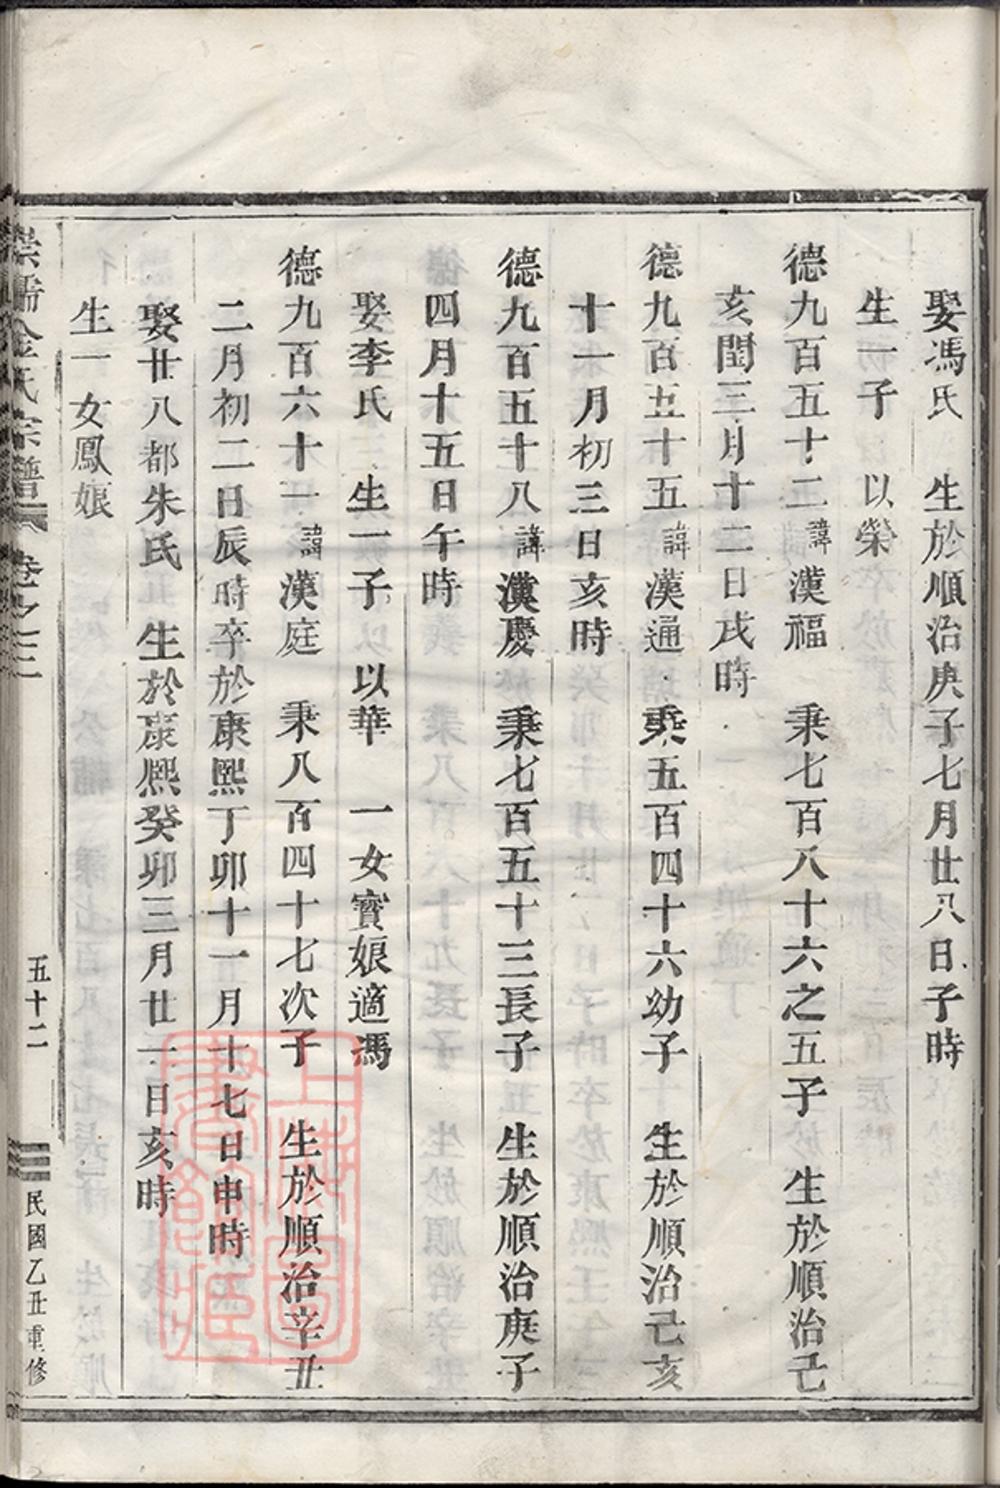 娶馮氏　生於順治庚子七月廿八日子時
生一子　以榮
德九百五十二諱漢福　秉七百八十六之五子　生於順治己
亥閏三月十二日戌時
德九百五十五諱漢通　秉五百四十六幼子　生於順治己亥
十一月初三日亥時
德九百五十八諱漢慶　秉七百五十三長子　生於順治庚子
四月十五日午時
娶李氏　生一子　以華　一女寶娘適馮
德九百六十一諱漢庭　秉八百四十七次子　生於順治辛丑
二月初二日辰時卒於康熙丁卯十一月十七日申時
娶廿八都朱氏　生於康熙癸卯三月廿一日亥時
生一女鳳娘
崇儒金氏宗譜　卷之三　五十二　民國乙丑重修
上海圖書館藏